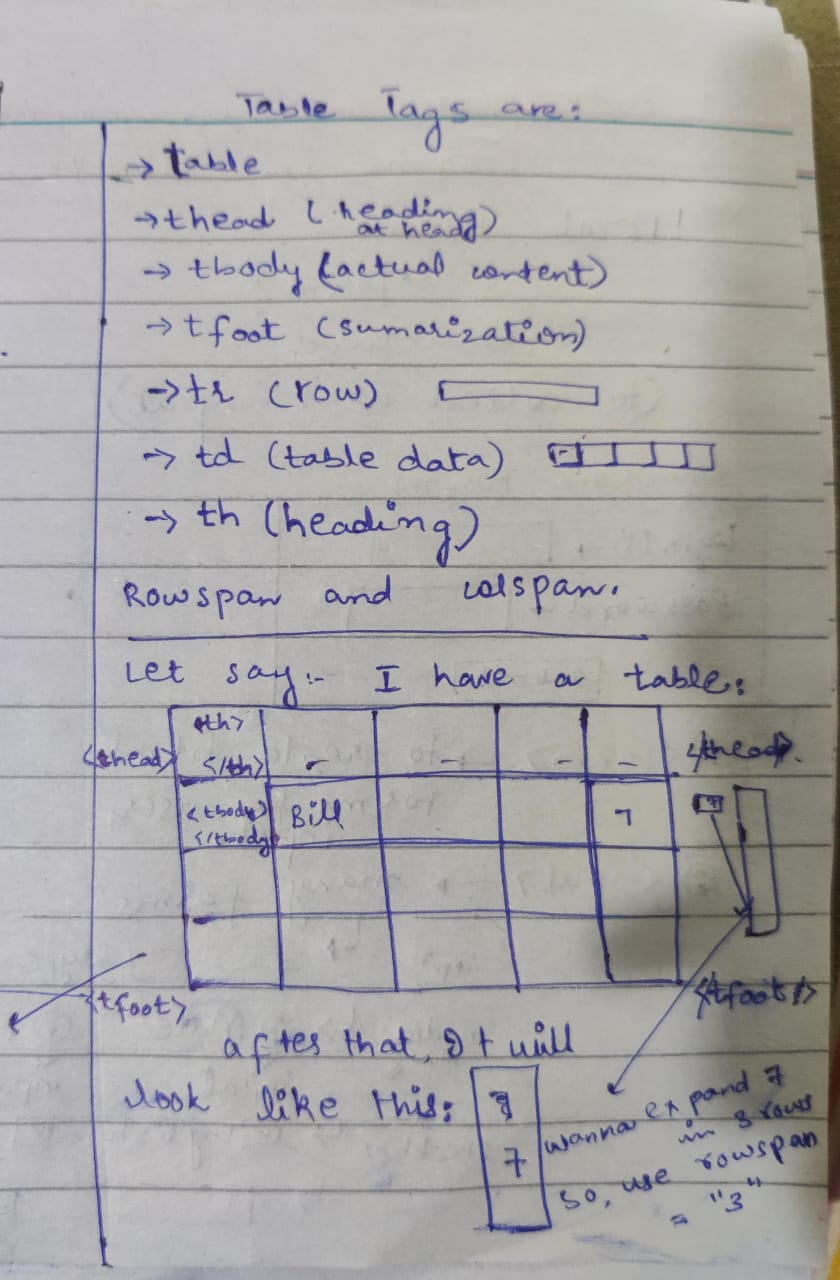 Table Tags are:
→ table
→ thead (heading
at head)
→ tbody (actual content)
→ tfoot (sumarization)
→ tr (row)
→ td (table data)
→ th (heading)
Rowspan and colspan.
Let say:- I have a table:
<th>
<thead> </th> - - - - </thead>
<tbody> Bill 7 7
</tbody>
<tfoot> <tfoot/>
after that, It will
look like this:
7
wanna expand 7
in 3 rows
so, use rowspan
= "3"